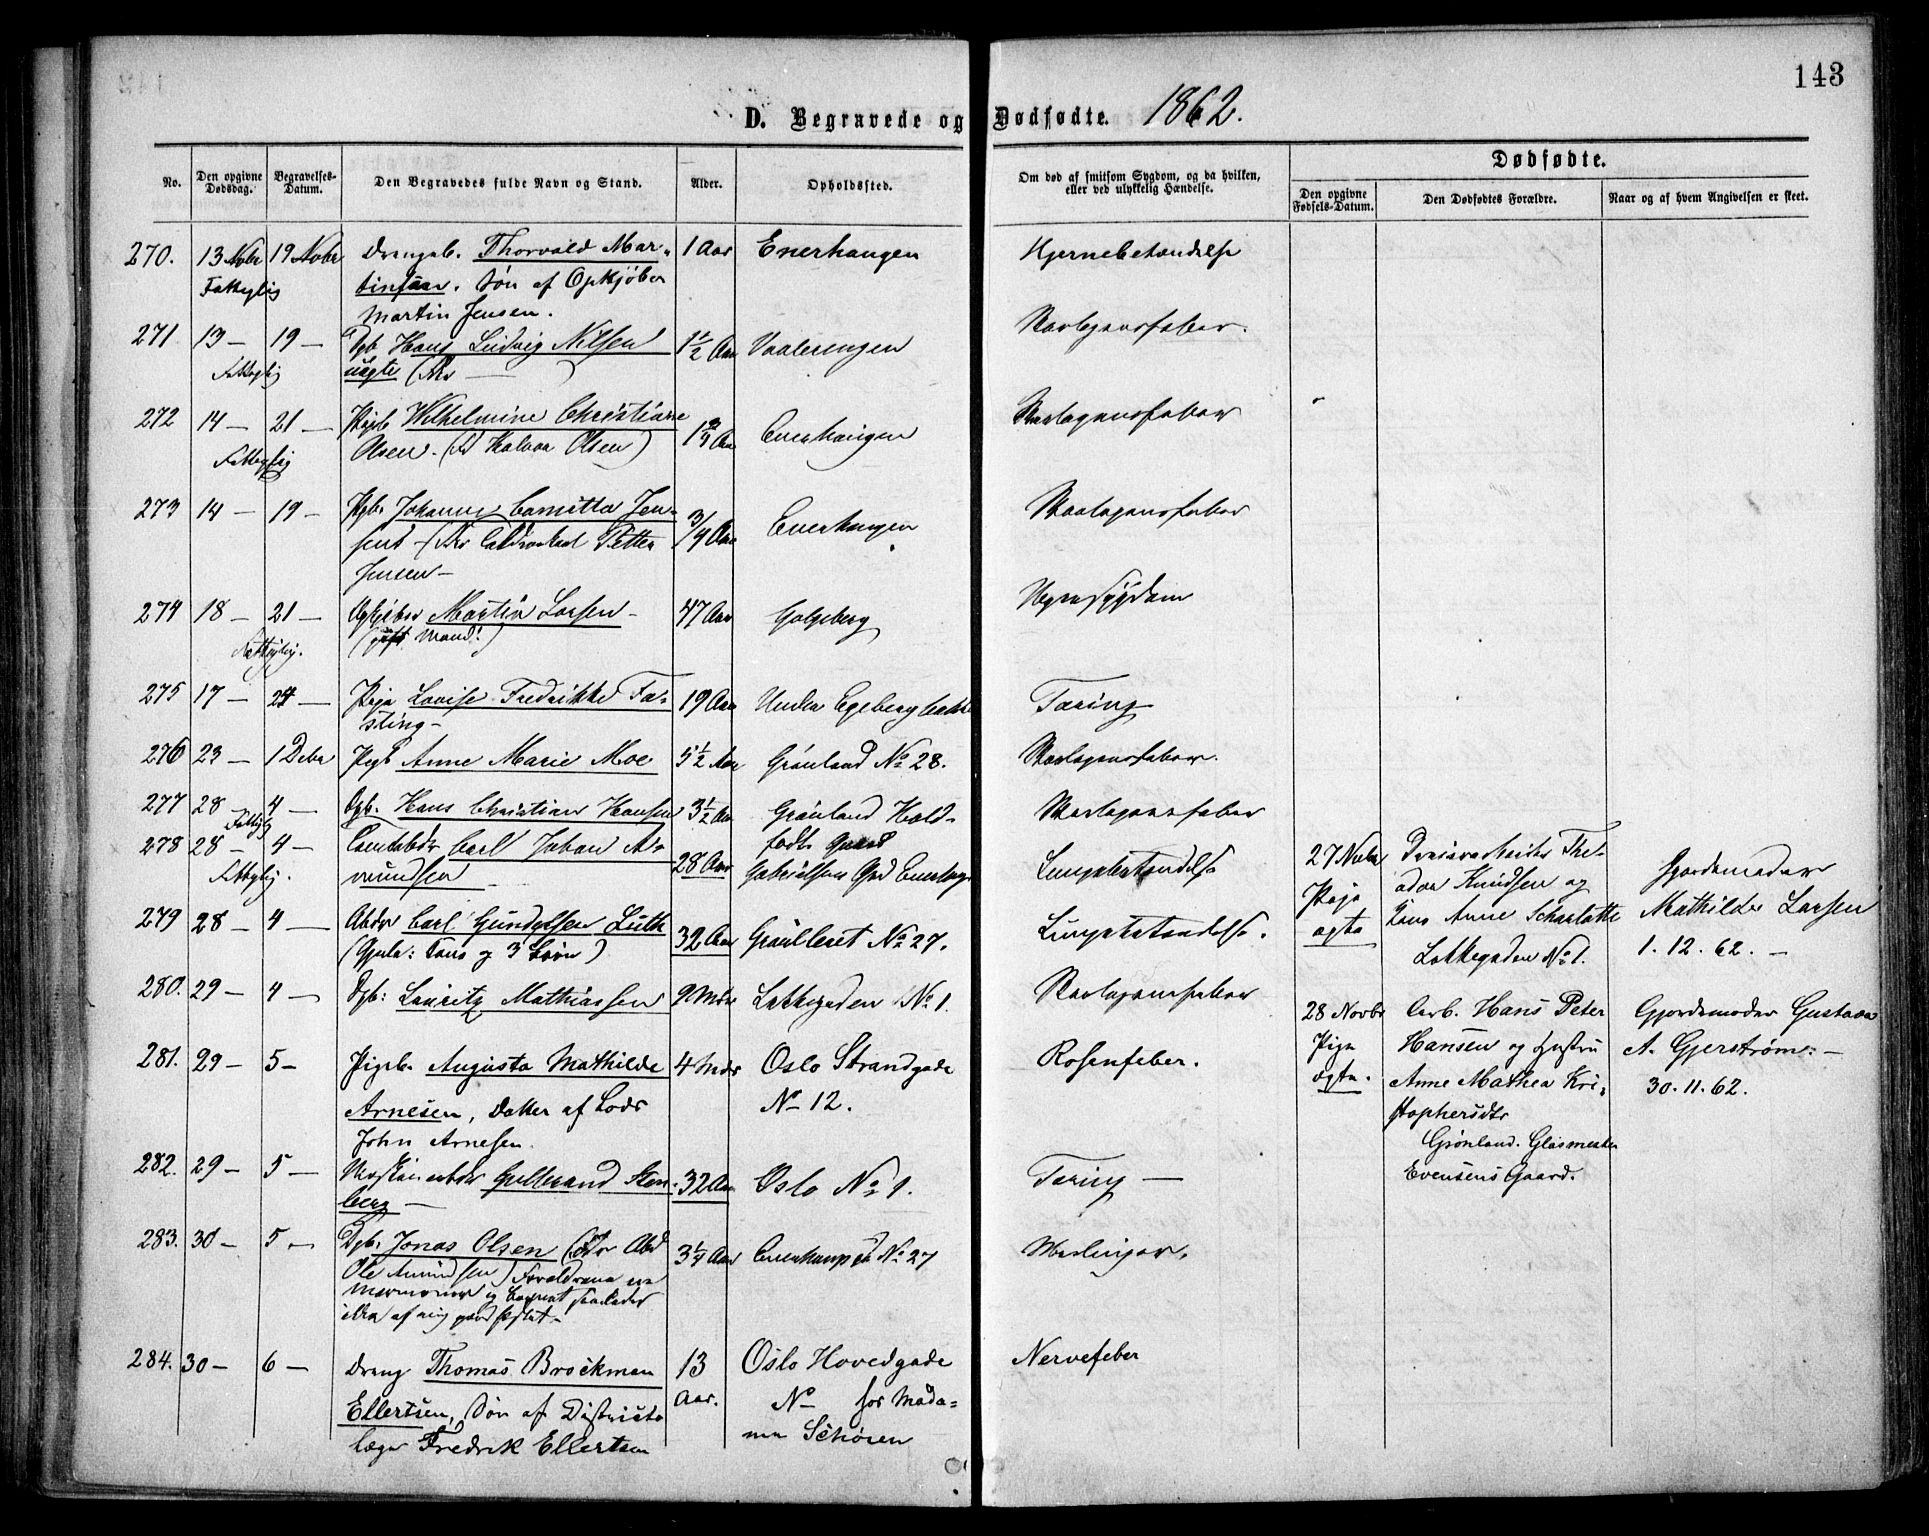 143
D. Begravede og Dødfødte. 1862.
No.
Den opgivne Dødsdag.
Begravelses-Datum.
Den Begravedes fulde Navn og Stand.
Alder.
Opholdssted.
Om død af smitsom Sygdom, og da hvilken,
eller ved ulykkelig Hændelse.
Dødfødte.
Den opgivne Fødsels-Datum.
Den Dødfødtes Forældre.
Naar og af hvem Angivelsen er skeet.
270. 13 Novbr 19 Novbr Drengeb. Thorvald Mar- 1 Aar Enerhaugen Hjernebetændelse
Fattiglig tinsen. Søn af Opkjøber
Martin Jensen.
271 13 — 19 — Dgb Hans Ludvig Nilsen 1 1/2 Aar Vaaleringen Skarlagensfeber.
Fattiglig uægte
272 14 — 21 — Pigb Wilhelmine Christiane Enerhaugen Skarlagensfeber
Fattiglig Olsen. (Halvor Olsen)
273 14 — 19 — Pgb. Johanne Camitta Jen- 3/4 Aar Enerhaugen Skarlagensfeber
sen Petter
Jensen —
274 18 — 21 — Opkjøber Martin Larsen — 47 Aar Galgeberg
Fattiglig. (gift Mand!)
275 17 — 24 — Pige Lovise Fredrikke Fa- 19 Aar Under Egeberg Tæring
sting —
276 23 — 1 Decbr Pigb Anne Marie Moe 5 1/2 Aar Grønland No 28. Skarlagensfeber.
277 28 4 — Dgb. Hans Christian Hansen 3 1/2 Aar Grønland Hold- Skarlagensfeber
Fattiglig fodts Gaard
278 28 — 4 — Carl Johan A- 28 Aar Gabrielsens Grd Lungebetændelse
Fattiglig. mundsen
27 Novbr Pige ægte
Knudsen og
Anne Scharlotte
Lakkegaden No 1.
Gjordemoder
Mathilde Larsen
1. 12. 62. —
279 28 — 4 — Carl Gundersen Lutk 32 Aar Grønleret No 27. Lungebetændelse.
og 3 Børn)
280. 29 — 4 — Dgb: Lauritz Mathiassen 9 Mdr Lakkegaden No 1. Skarlagensfeber
28 Novbr Pige ægte.
Arb. Hans Peter
Hansen og Hustru
Anne Mathea Kri-
stophersdtr
Grønland. Glasmester
Evensens Gaard.
Gjordemoder Gustava
A. Gjerstrøm: —
30. 11. 62.
281. 29 — 5 — Pigeb. Augusta Mathilde 4 Mdr Oslo Strandgade Rosenfeber.
Arnesen, Datter af Lods No 12.
John Arnesen.
282. 29 — 5 — Gulbrand Sten- 32 Aar Oslo No 1. Tæring —
berg —
283. 30 — 5 — Dgb. Jonas Olsen 3 1/4 Aar Enerhaugen No 27 Meslinger.
Ole Amundsen) Forældrene ere
Mormoner og Barnet saaledes
ikke af mig
284. 30 — 6 — Dreng Thomas Brockman 13 Oslo Hovedgade Nervefeber
Ellertsen, Søn af Distrikts- Aar. No — hos Mada-
læge Fredrik Ellertsen me Schøien